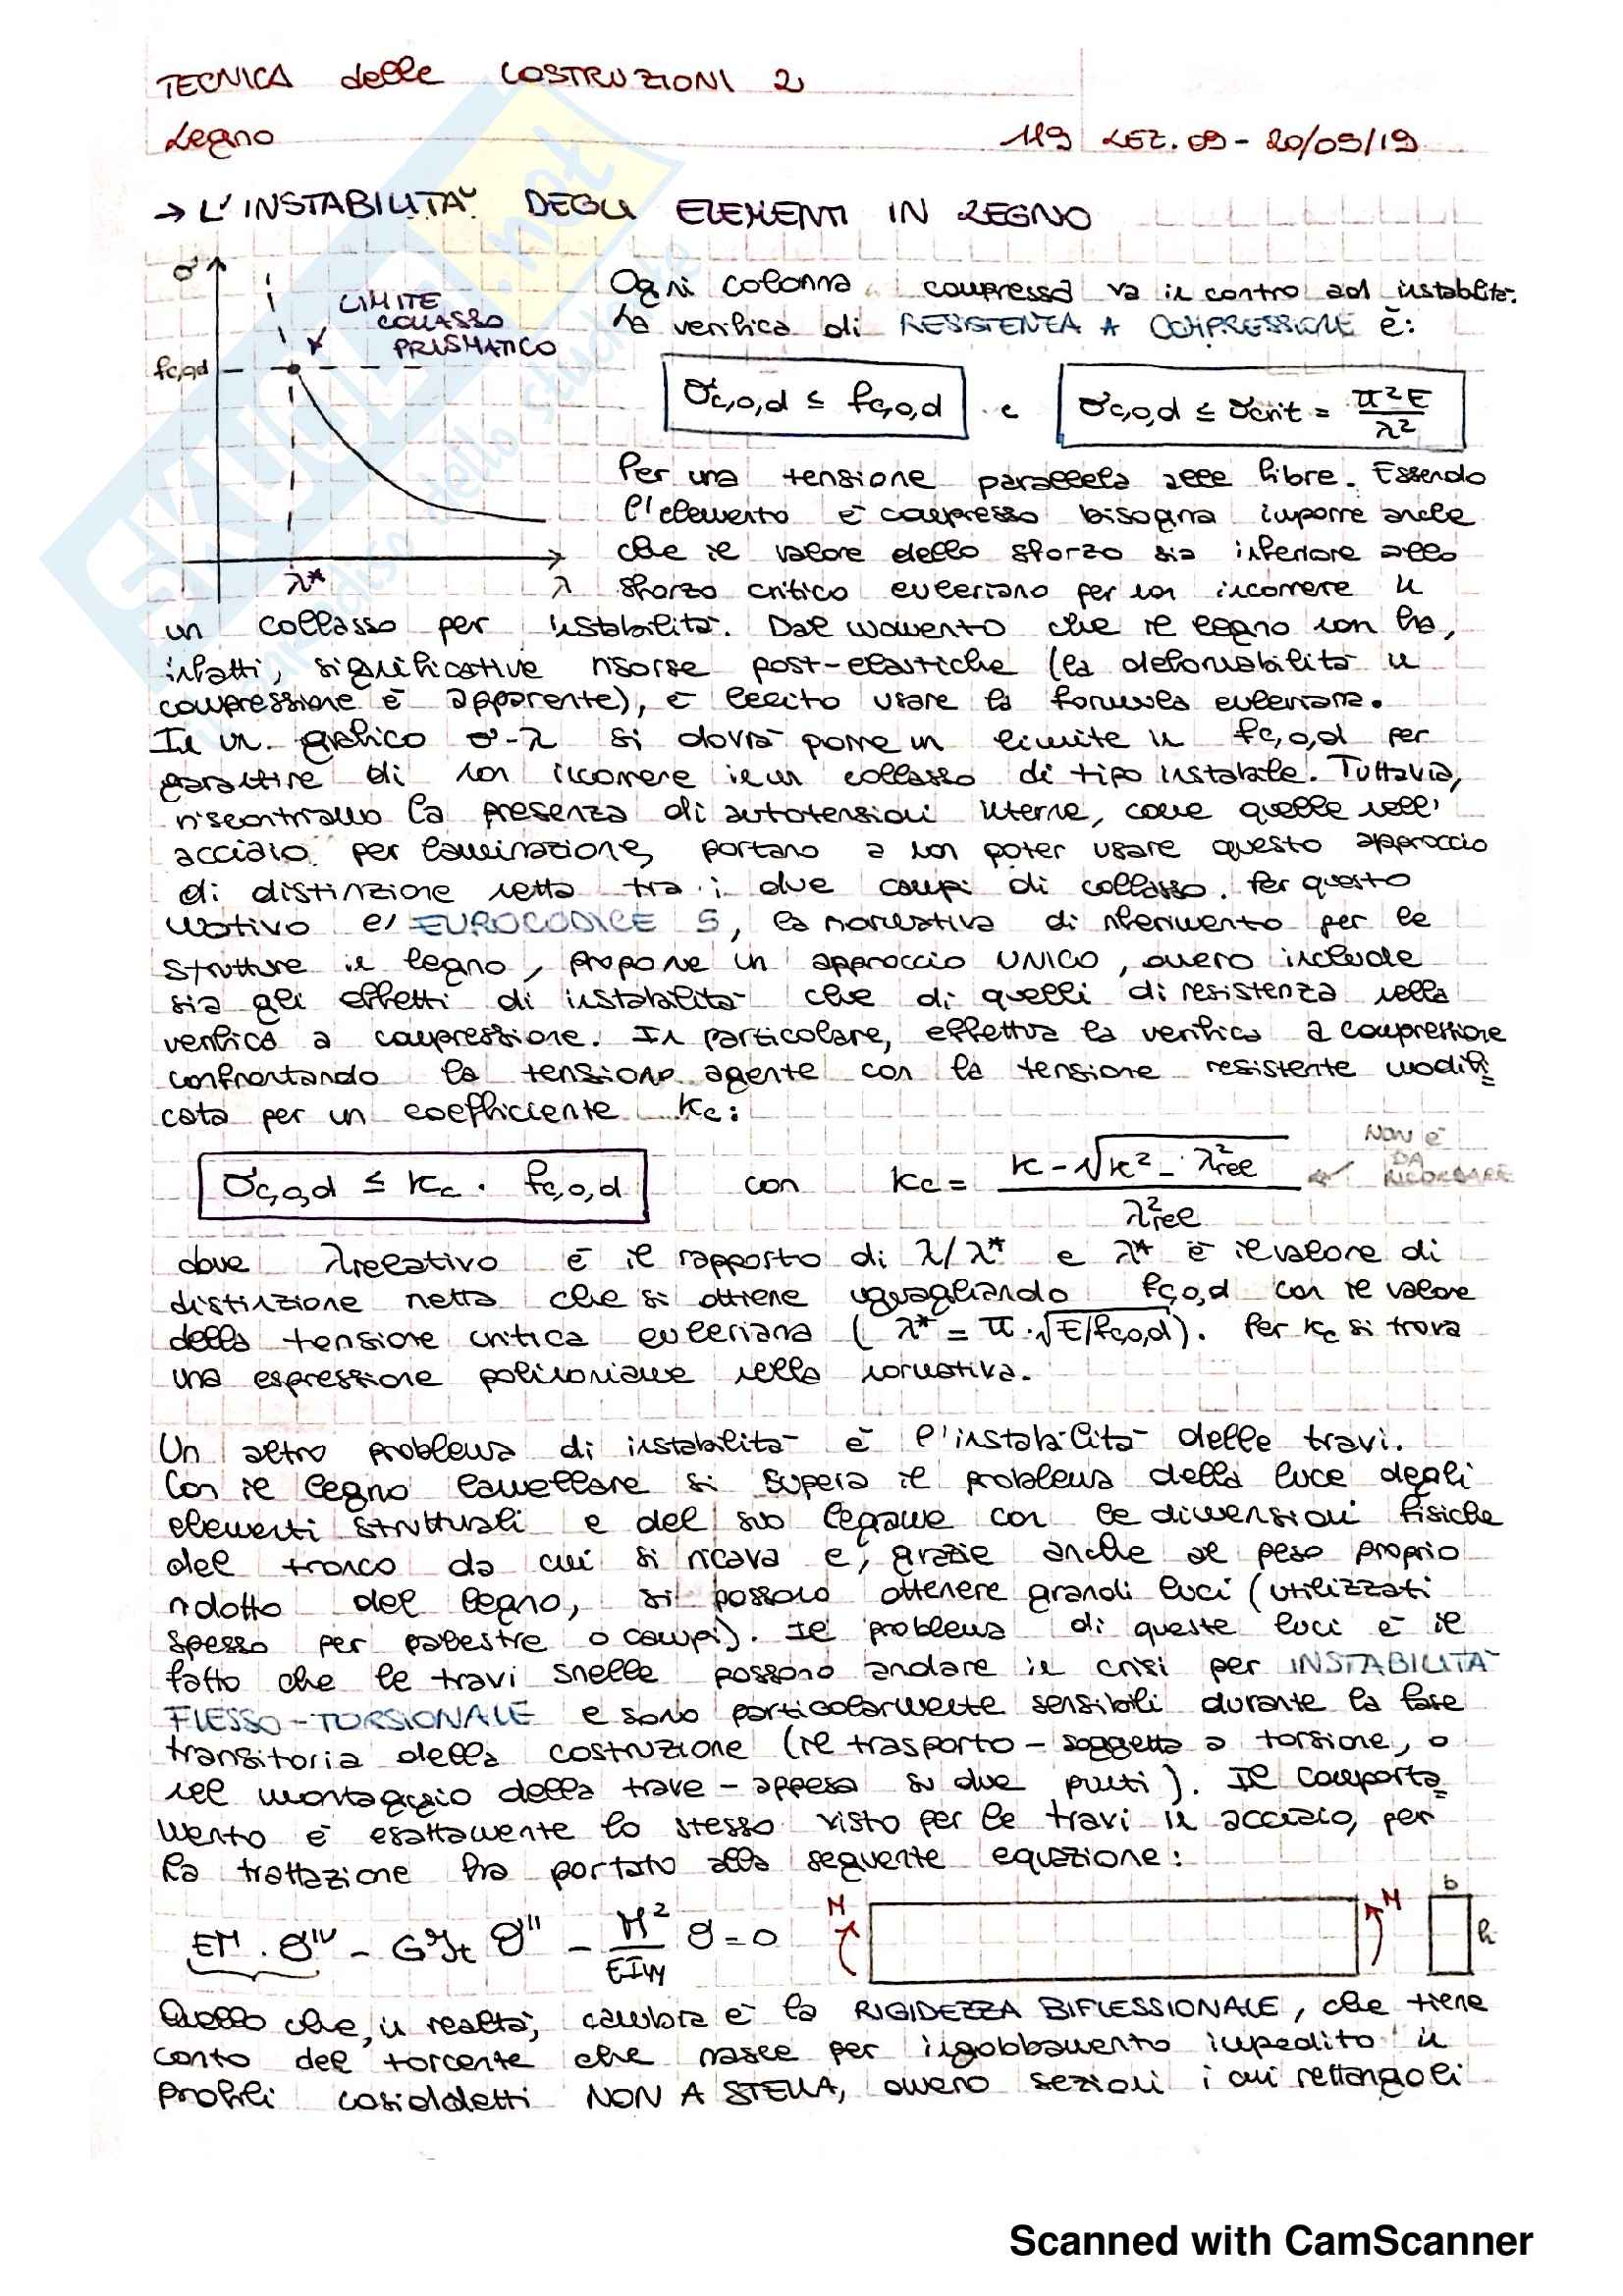 TECNICA delle COSTRUZIONI 2
Legno 119 LEZ. 09 - 20/05/19
→ L'INSTABILITA' DEGLI ELEMENTI IN LEGNO
σ
LIMITE COLLASSO PRISMATICO
fc,0,d
λ*
λ
Ogni colonna compressa va in contro ad instabilità.
La verifica di RESISTENZA A COMPRESSIONE è:
σc,0,d ≤ fc,0,d e σc,0,d ≤ σcrit = π²E/λ²
Per una tensione parallela alle fibre. Essendo
l'elemento è compresso bisogna imporre anche
che il valore dello sforzo sia inferiore allo
sforzo critico euleriano per non incorrere in
un collasso per instabilità. Dal momento che il legno non ha,
infatti, significative risorse post-elastiche (la deformabilità in
compressione è apparente), è lecito usare la formula euleriana.
In un grafico σ-λ si dovrà porre un limite in fc,0,d per
garantire di non incorrere in un collasso di tipo instabile. Tuttavia,
riscontriamo la presenza di autotensioni interne, come quelle nell'
acciaio per laminazione, portano a non poter usare questo approccio
di distinzione netta tra i due campi di collasso. Per questo
motivo l'EUROCODICE 5, la normativa di riferimento per le
strutture in legno, propone un approccio UNICO, ovvero include
sia gli effetti di instabilità che di quelli di resistenza nella
verifica a compressione. In particolare, effettua la verifica a compressione
confrontando la tensione agente con la tensione resistente modifi=
cata per un coefficiente Kc:
σc,0,d ≤ Kc · fc,0,d con Kc = (K - √(K² - λ²rel)) / λ²rel ← NON È DA RICORDARE
dove λrelativo è il rapporto di λ/λ* e λ* è il valore di
distinzione netta che si ottiene uguagliando fc,0,d con il valore
della tensione critica euleriana (λ* = π·√(E/fc,0,d)). Per Kc si trova
una espressione polinomiale nella normativa.
Un altro problema di instabilità è l'instabilità delle travi.
Con il legno lamellare si supera il problema della luce degli
elementi strutturali e del suo legame con le dimensioni fisiche
del tronco da cui si ricava e, grazie anche al peso proprio
ridotto del legno, si possono ottenere grandi luci (utilizzati
spesso per palestre o campi). Il problema di queste luci è il
fatto che le travi snelle possono andare in crisi per INSTABILITÀ
FLESSO-TORSIONALE e sono particolarmente sensibili durante la fase
transitoria della costruzione (il trasporto - soggetta a torsione, o
nel montaggio della trave - appesa su due punti). Il comporta=
mento è esattamente lo stesso visto per le travi in acciaio, per
la trattazione ha portato alla seguente equazione:
EΓ · θᴵⱽ - GJt θ'' - M²/EIyy θ = 0 M M b h
Quello che, in realtà, cambia è la RIGIDEZZA BIFLESSIONALE, che tiene
conto del torcente che nasce per ingobbamento impedito in
profili cosiddetti NON A STELLA, ovvero sezioni i cui rettangoli
Scanned with CamScanner